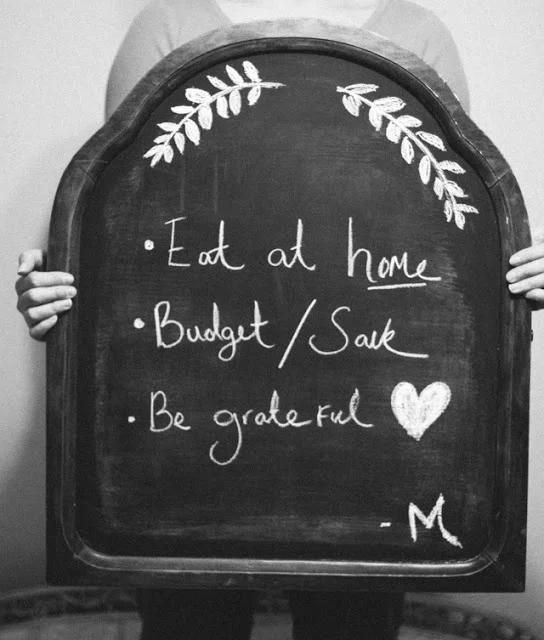 • Eat at home
• Budget/Save
• Be grateful
- M